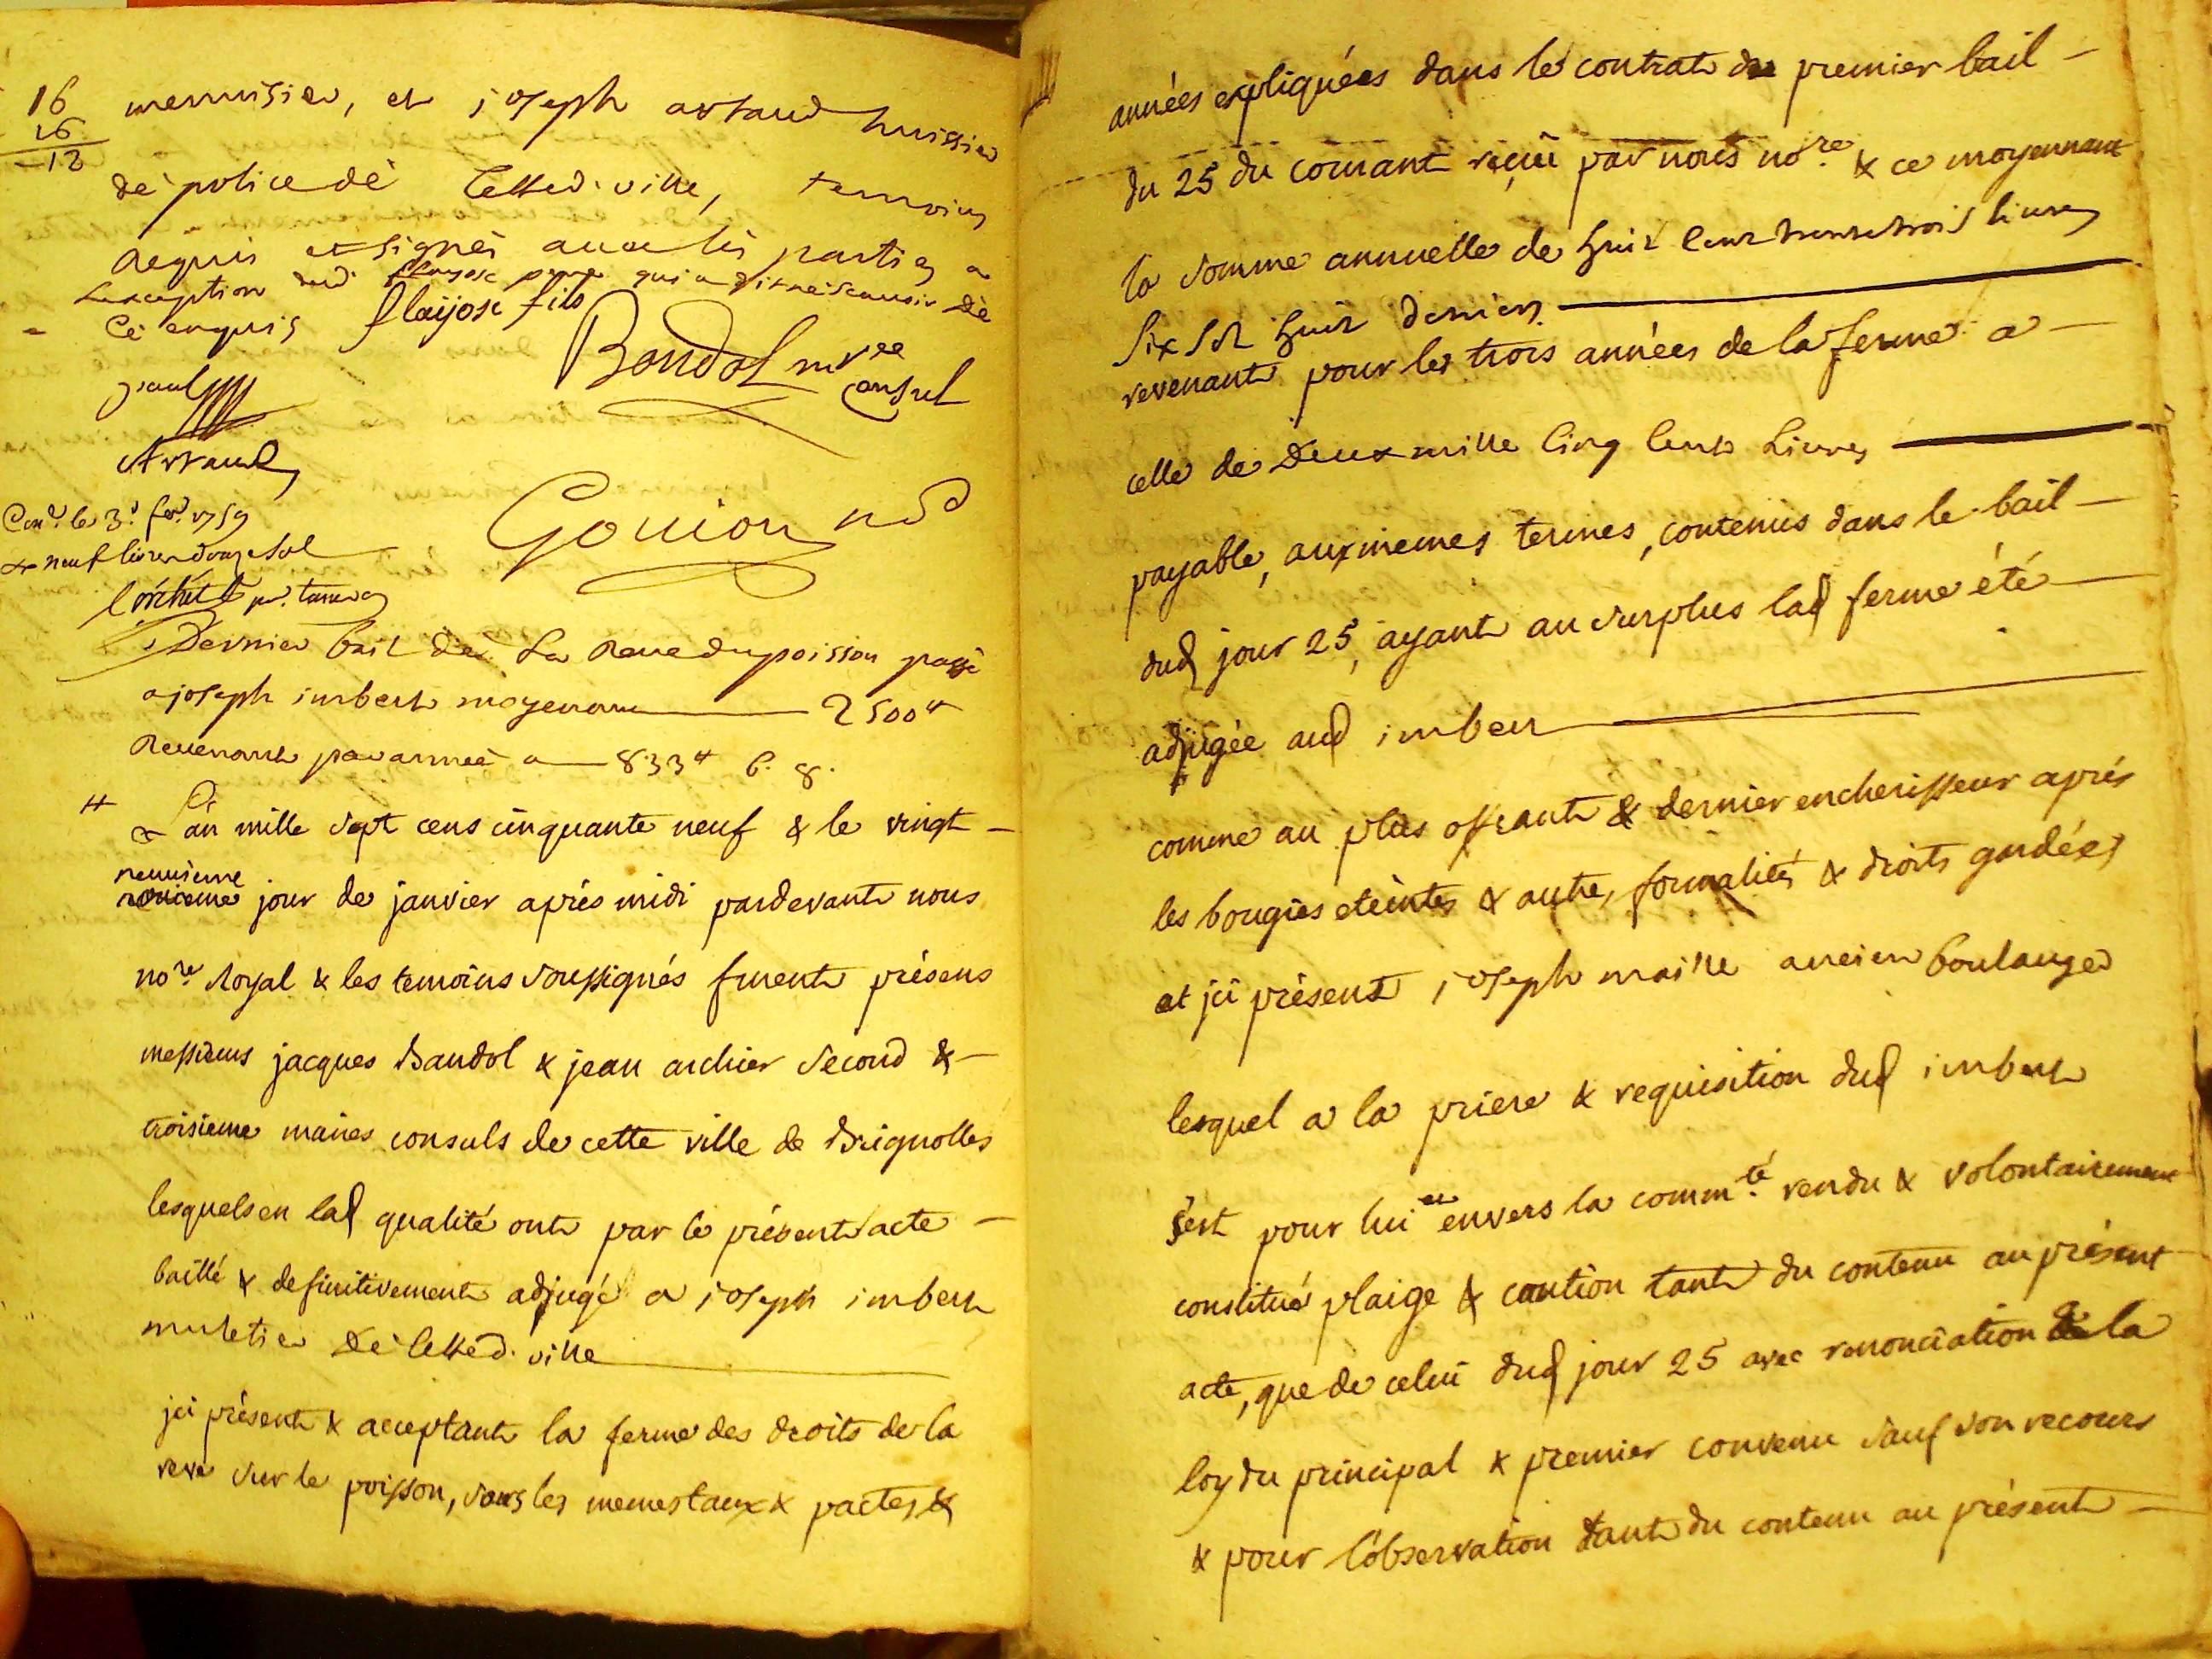 16
16
13
menuisier, et joseph artaud huissier
de police de cetted. ville, temoins
requis et signés avec les parties a
lexception dud. flayosc pere qui a dit ne scavoir de
ce enquis flaijosc fils
Bandol m.re
Consul
paul
Artaud
Gouion n.re
Con.lé le 3.e fev. 1759
neuf livres douze sol
Dernier bail de la Reve du poisson passé
a joseph imbert moyenant 2500 ₶
Revenant par année a 833 ₶ 6. 8.
L'an mille sept cens cinquante neuf & le vingt
neuvieme
jour de janvier aprés midi pardevant nous
no.re Royal & les temoins soussignés furent présens
messieurs jacques Bandol & jean archier second &
troisieme maires consuls de cette ville de Brignolles
lesquels en lad qualité ont par le présent acte
baillé & definitivement adjugé a joseph imbert
muletier de cetted. ville
ici présent & acceptant la ferme des droits de la
reve sur le poisson, sous les memes taux & pactes &
années expliquées dans le contrat du premier bail
du 25 du courant reçeu par nous no.re & ce moyennant
la somme annuelle de huit cent trente trois livres
six sols huit deniers
revenant pour les trois années de la ferme a
celle de Deux mille cinq cents Livres
payable, aux memes termes, contenus dans le bail
dud jour 25, ayant au surplus lad ferme été
adjugée aud imbert
comme au plus offrant & dernier encherisseur aprés
les bougies eteintes & autres formalités & droits gardées
et ici présent joseph maille ancien boulanger
lesquel a la priere & requisition dud imbert
s'est pour lui et envers la comm.té rendu & volontairement
constitué plaige & caution tant du contenu au présent
acte, que de celui dud jour 25 avec renonciation a la
loy du principal & premier convenu sauf son recours
& pour l'observation tant du contenu au présent